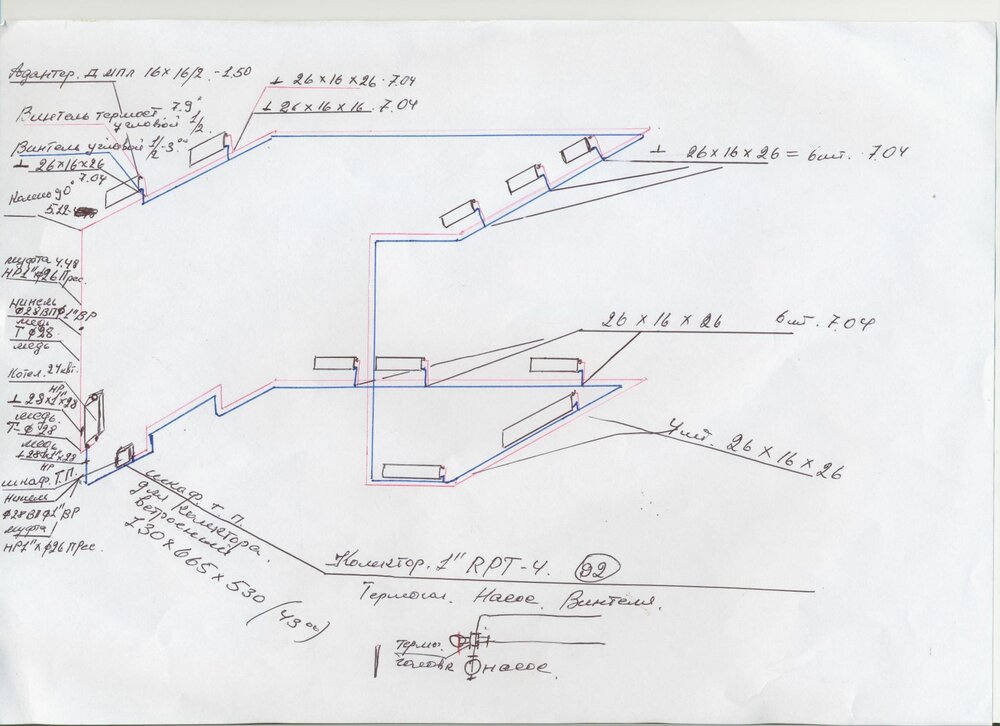 Адаптер. Д МПЛ 16×16/2. -1.50
Винтель термост 7.9°
угловой 1/2.
Винтель угловой 1/2 -3.°°
⊥ 26×16×26
7.04
Колено 90°
5.22
муфта 4.48
НР1"×ф26 Прес.
нипель
Ф28ВПФ1"ВР
медь
Т Ф28
медь
Котел. 24квт.
НР
⊥ 28×1"×28
медь.
Т-Ф28
медь
⊥28×1"×28
НР
шкаф. Т.П.
Нипель
Ф28ВПФ1"ВР
муфта
НР1"×ф26 Прес.
⊥ 26×16×26 7.04
⊥ 26×16×16. 7.04
⊥ 26×16×26 = 6шт. 7.04
26×16×26 6шт. 7.04
4шт. 26×16×26
шкаф. Т.П.
для колектора
встроенный
730×665×530 (43°°)
Колектор. 1" RPT-4. 92
Насос. Винтеля.
термо.
головка
насос.